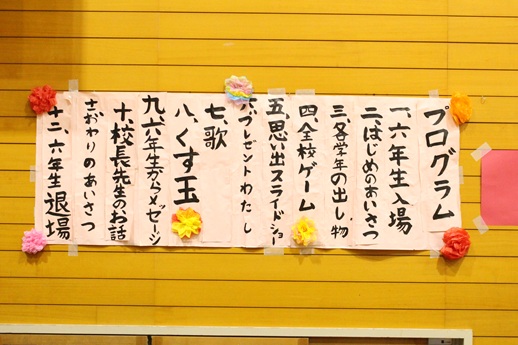 プログラム
一、六年生入場
二、はじめのあいさつ
三、各学年の出し物
四、全校ゲーム
五、思い出スライドショー
六、プレゼントわたし
七、歌
八、くす玉
九、六年生からメッセージ
十、校長先生のお話
十一、おわりのあいさつ
十二、六年生退場